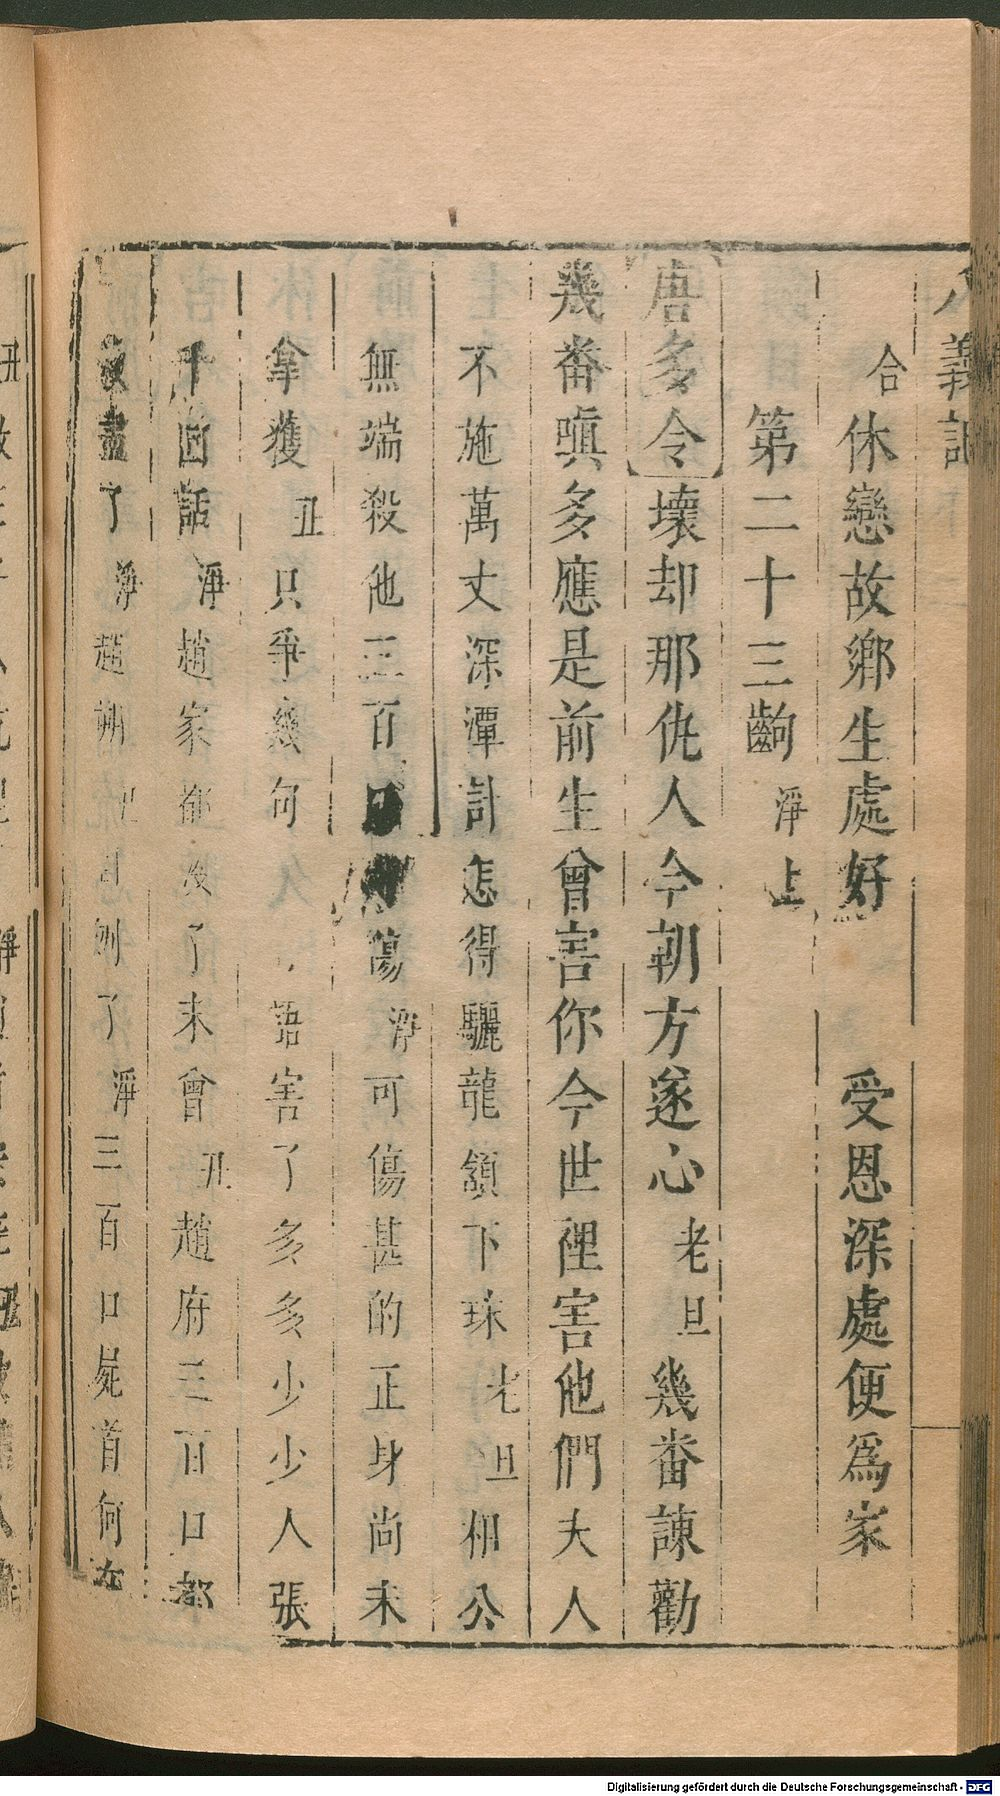 八義記
合休戀故鄉生處好 受恩深處便為家
第二十三齣淨上
唐多令壞却那仇人今朝方遂心老旦幾番諫勸
幾番嗔多應是前生曾害你今世裡害他們夫人
不施萬丈深潭計怎得驪龍頷下珠老旦相公
無端殺他三百口傷淨可傷甚的正身尚未
拿獲丑只爭幾何久語害了多多少少人張
千囬話淨趙家都沒了未曾丑趙府三百口都
盡了淨趙朔刎了淨三百口屍首何在
Digitalisierung gefördert durch die Deutsche Forschungsgemeinschaft - DFG